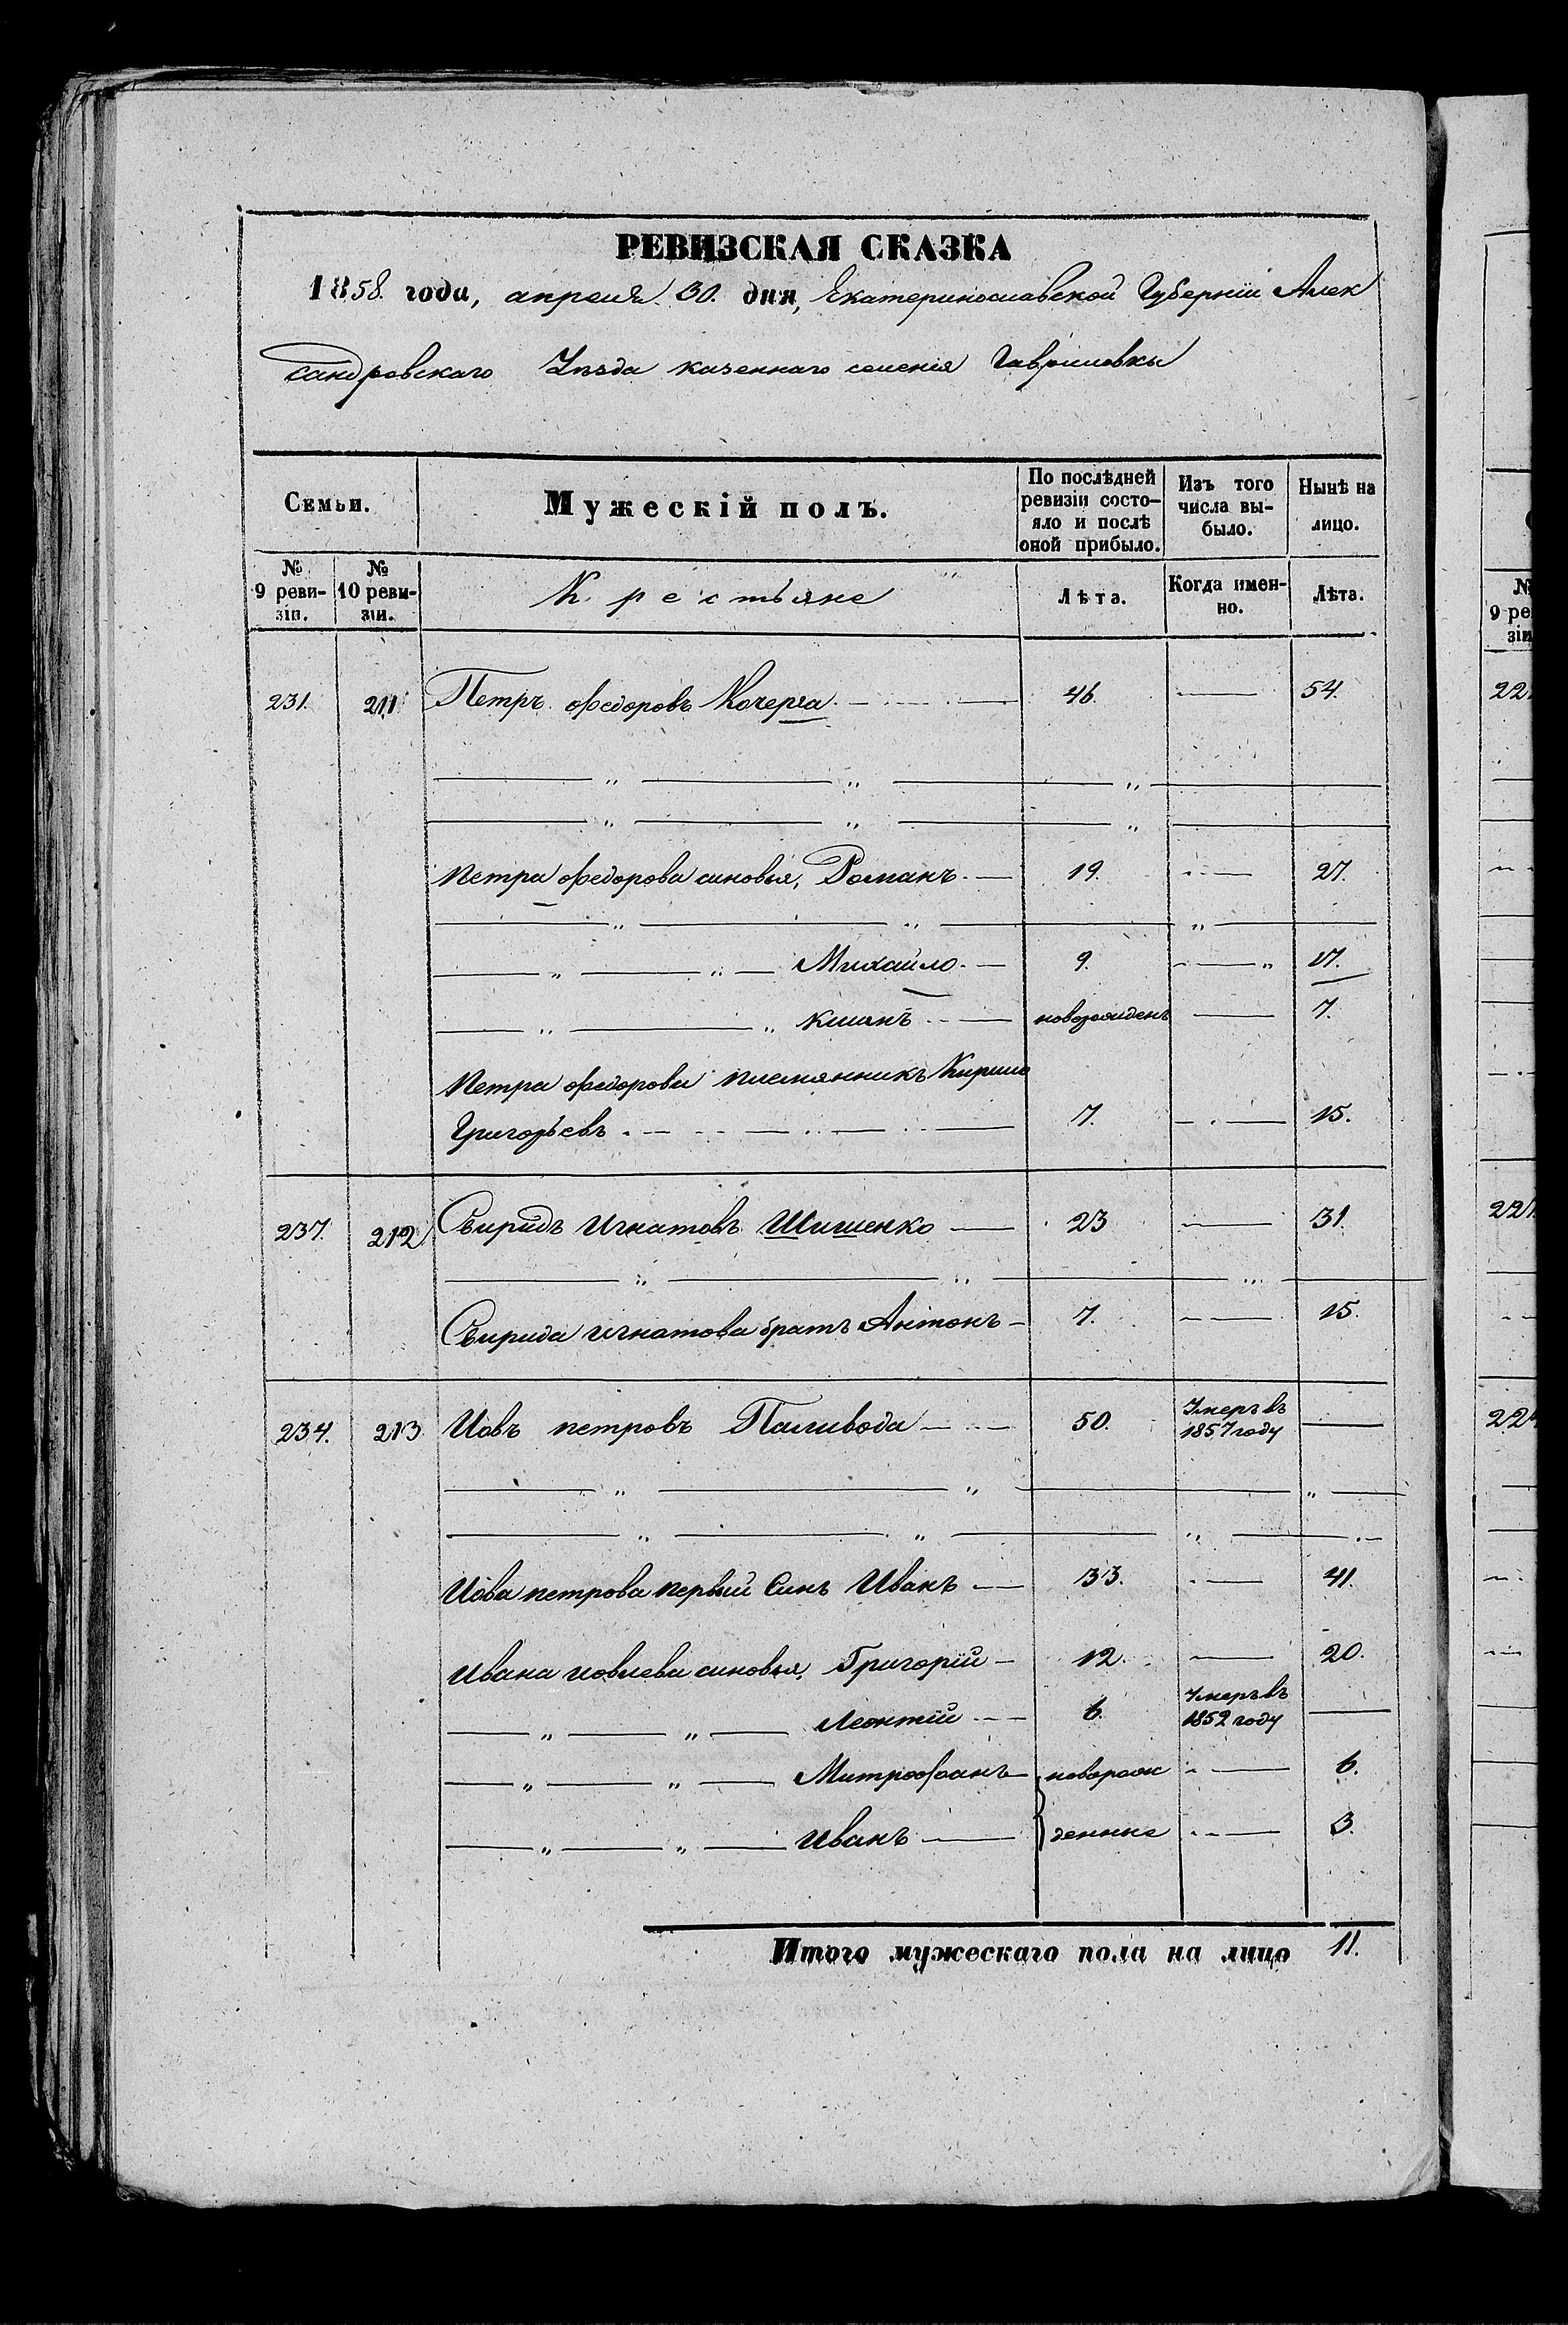 РЕВИЗСКАЯ СКАЗКА
1858. года, апреля 30. дня, Екатеринославской Губерніи Алек
сандровскаго Уезда казеннаго селенія Гавриловки
Семьи.
Мужескій полъ.
По послѣдней ревизіи состо- яло и послѣ оной прибыло.
Изъ того числа вы- было.
Нынѣ на лицо.
№ 9 реви- зіи.
№ 10 реви- зіи.
Крестьяне
Лѣта.
Когда имен- но.
Лѣта.
231. 211 Петръ федоровъ Кочерга 46. 54.
Петра федорова синовья, Романъ 19. 27.
" " Михайло 9. 17.
" " новорожденъ 7.
Петра федорова племянникъ Кирило
Григорьевъ 7. 15.
237. 212 Свиридъ Игнатовъ Шишенко 23 31.
Свирида игнатова братъ Антонъ 7. 15.
234. 213 Иовъ петровъ Паливода 50. Умеръ въ
1857 году
Иова петрова первый Синъ Иванъ 33. 41.
Ивана иовлева синовья, Григорій 12. 20.
" " Леонтій 6. Умеръ въ
1852 году
" " Митрофанъ новорож 6.
" " Иванъ денние 3.
Итого мужескаго пола на лицо 11.
№
9 ре
зіи
22
221
22